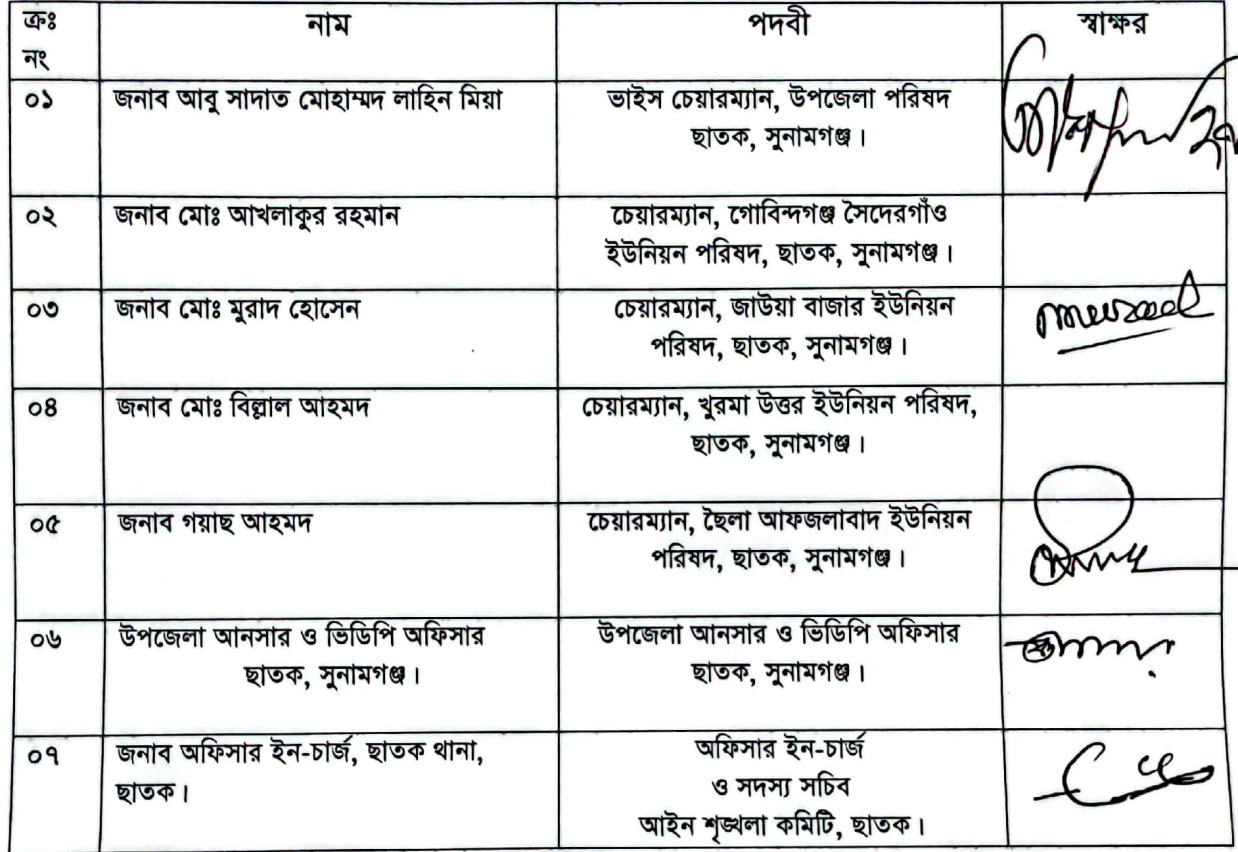 ক্রঃ নং | নাম | পদবী | স্বাক্ষর
০১ | জনাব আবু সাদাত মোহাম্মদ লাহিন মিয়া | ভাইস চেয়ারম্যান, উপজেলা পরিষদ
ছাতক, সুনামগঞ্জ।
০২ | জনাব মোঃ আখলাকুর রহমান | চেয়ারম্যান, গোবিন্দগঞ্জ সৈদেরগাঁও
ইউনিয়ন পরিষদ, ছাতক, সুনামগঞ্জ।
০৩ | জনাব মোঃ মুরাদ হোসেন | চেয়ারম্যান, জাউয়া বাজার ইউনিয়ন
পরিষদ, ছাতক, সুনামগঞ্জ।
০৪ | জনাব মোঃ বিল্লাল আহমদ | চেয়ারম্যান, খুরমা উত্তর ইউনিয়ন পরিষদ,
ছাতক, সুনামগঞ্জ।
০৫ | জনাব গয়াছ আহমদ | চেয়ারম্যান, ছৈলা আফজলাবাদ ইউনিয়ন
পরিষদ, ছাতক, সুনামগঞ্জ।
০৬ | উপজেলা আনসার ও ভিডিপি অফিসার | উপজেলা আনসার ও ভিডিপি অফিসার
ছাতক, সুনামগঞ্জ। | ছাতক, সুনামগঞ্জ।
০৭ | জনাব অফিসার ইন-চার্জ, ছাতক থানা, | অফিসার ইন-চার্জ
ছাতক। | ও সদস্য সচিব
আইন শৃঙ্খলা কমিটি, ছাতক।